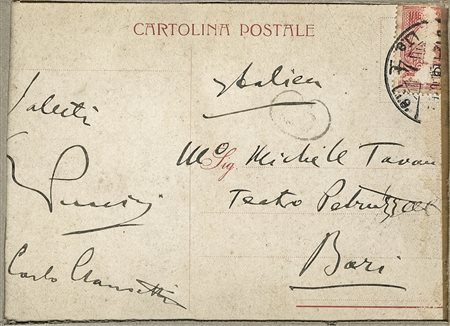 CARTOLINA POSTALE
Italien
Saluti
Mo Sig. Michele Tavan
Puccini
Teatro Petruzzelli
Bari
Carlo Clausetti